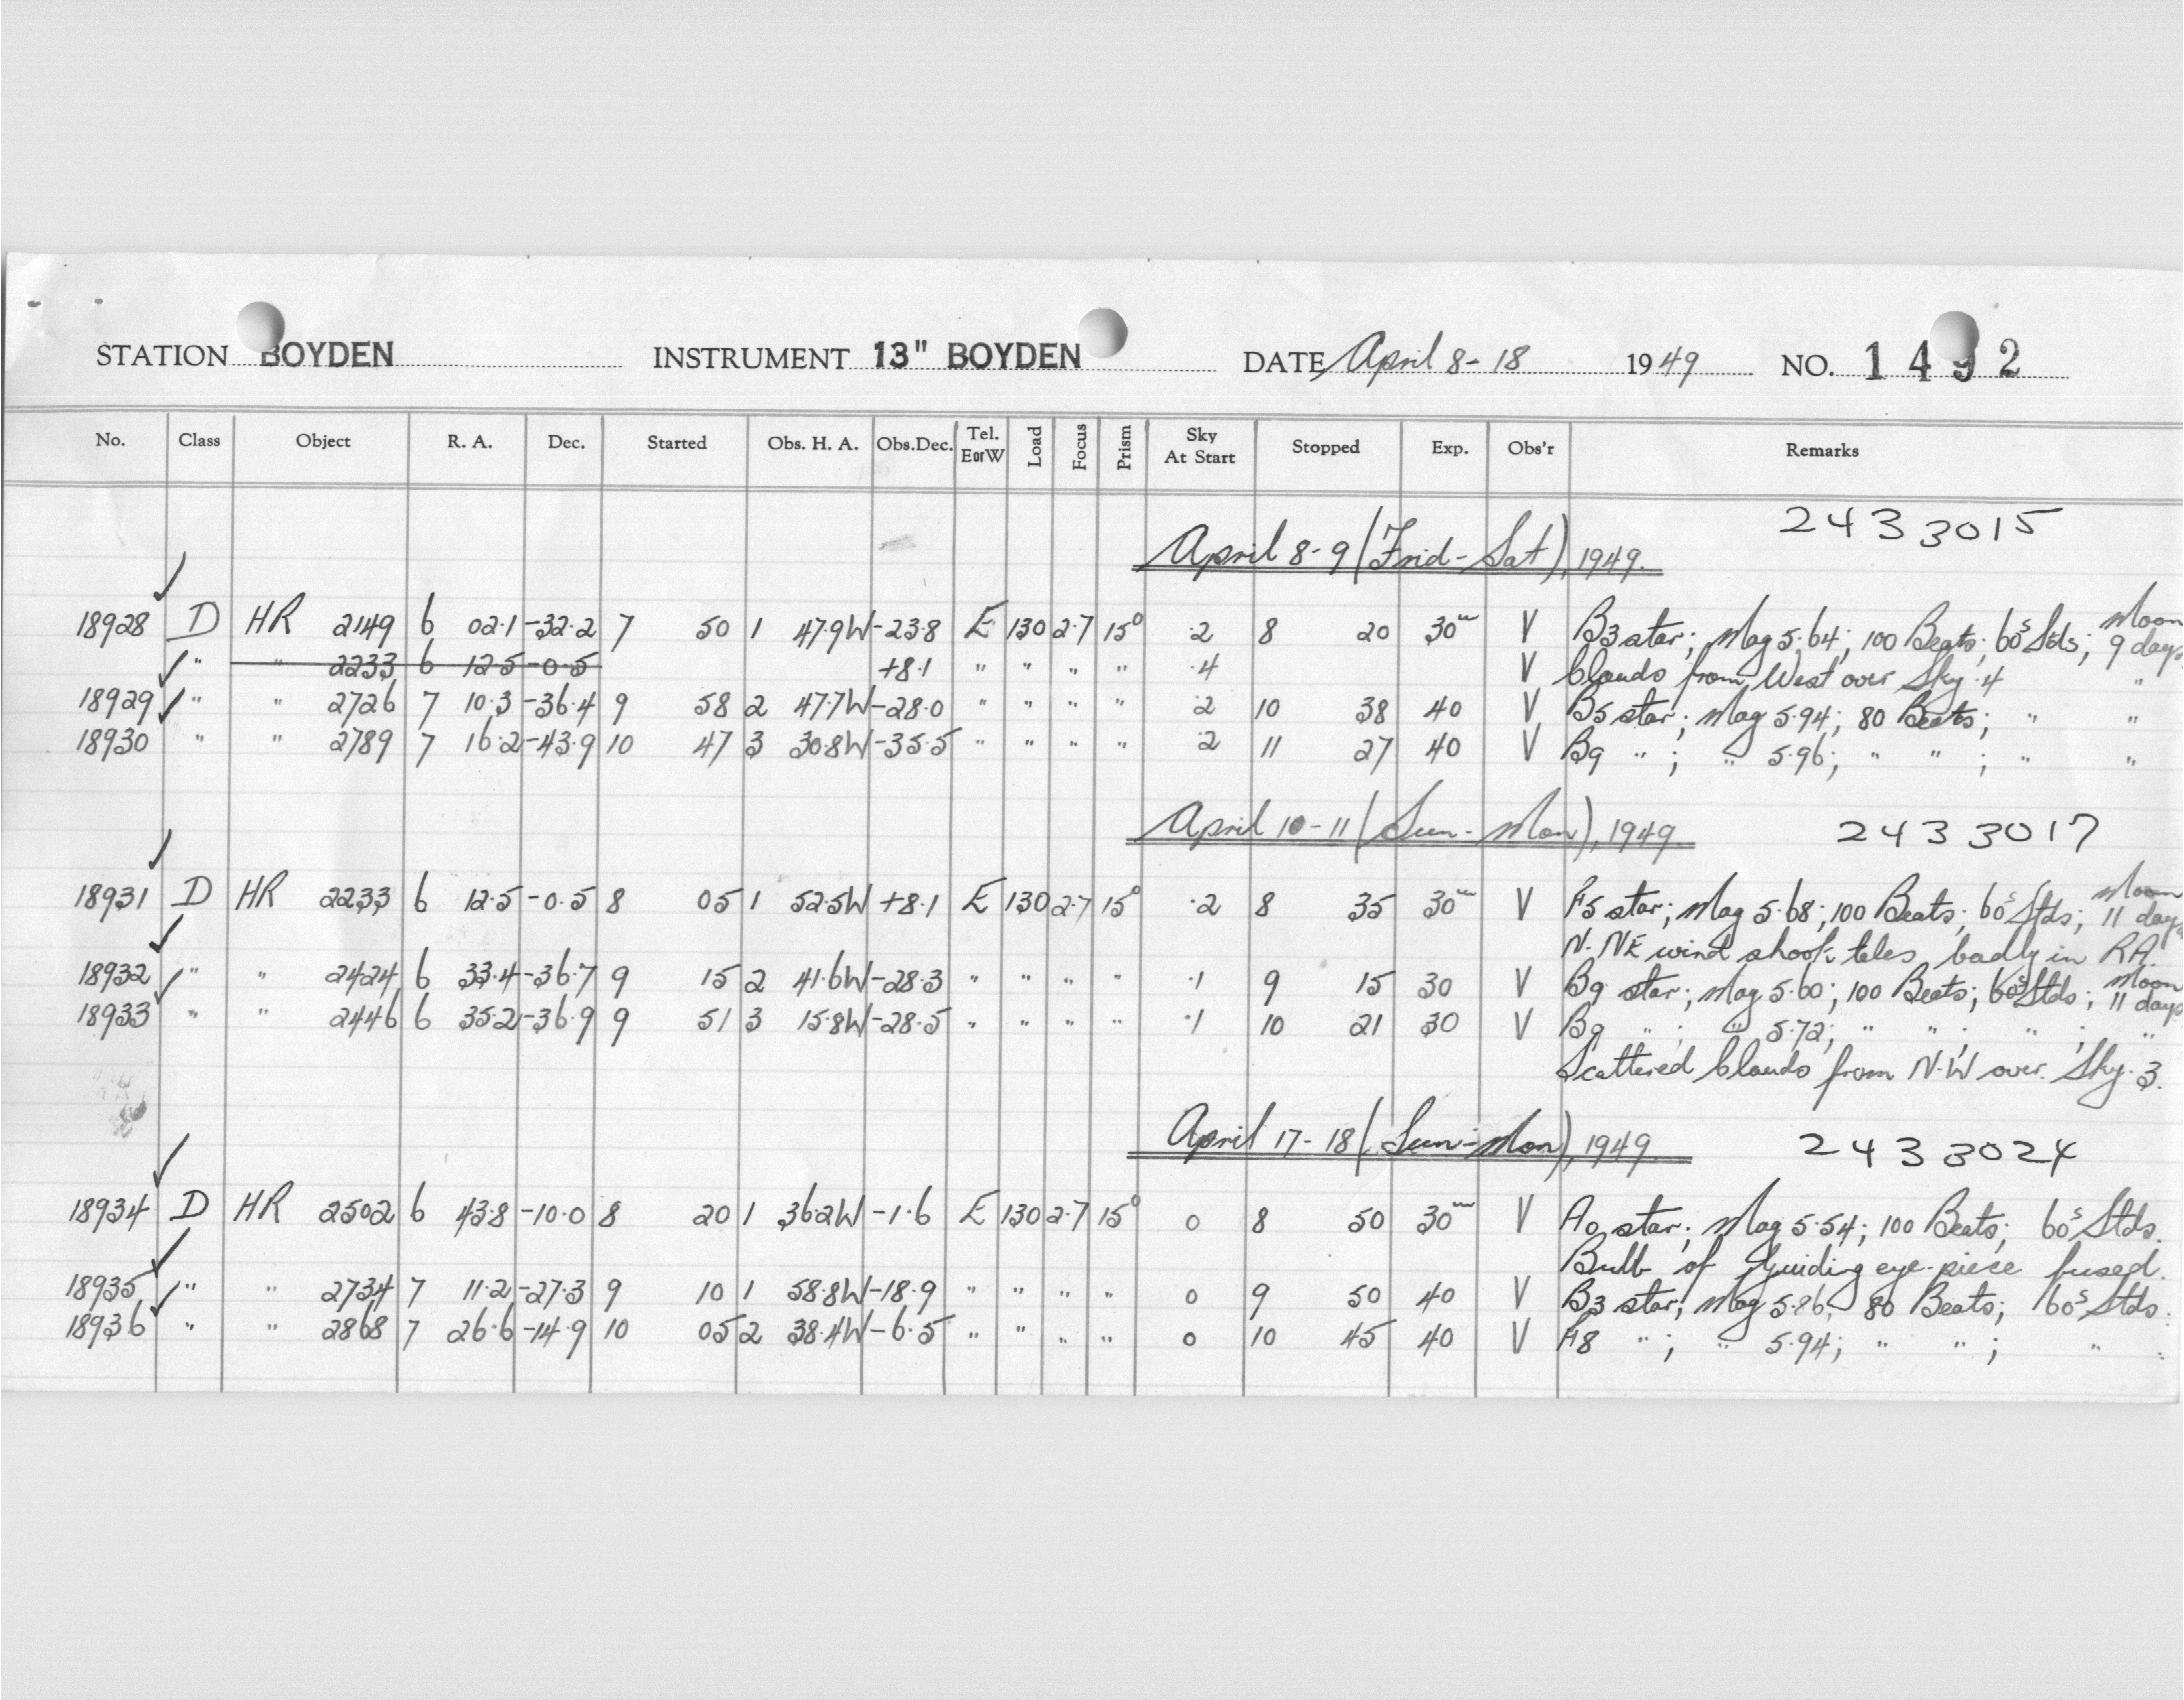 STATION BOYDEN INSTRUMENT 13" BOYDEN DATE April 8-18 1949 NO. 1492
No. Class Object R. A. Dec. Started Obs. H. A. Obs.Dec. Tel. EorW Load Focus Prism Sky At Start Stopped Exp. Obs'r Remarks
2433015
April 8-9 (Frid-Sat), 1949.
18928 D HR 2149 6 02.1 -32.2 7 50 1 47.9W -23.8 E 130 2.7 15° .2 8 20 30m V B3 star; Mag 5.64; 100 Beats; 60s Stds; Moon 9 days
" " 2233 6 12.5 -0.5 +8.1 " " " " .4 V Clouds from West over Sky .4 "
18929 " " 2726 7 10.3 -36.4 9 58 2 47.7W -28.0 " " " " .2 10 38 40 V B5 star; Mag 5.94; 80 Beats; " "
18930 " " 2789 7 16.2 -43.9 10 47 3 30.8W -35.5 " " " " .2 11 27 40 V B9 " ; " 5.96; " " ; " "
April 10-11 (Sun-Mon), 1949. 2433017
18931 D HR 2233 6 12.5 -0.5 8 05 1 52.5W +8.1 E 130 2.7 15° .2 8 35 30m V F5 star; Mag 5.68; 100 Beats; 60s Stds; Moon 11 days
N. NE wind shook teles badly in RA.
18932 " " 2424 6 33.4 -36.7 9 15 2 41.6W -28.3 " " " " .1 9 15 30 V B9 star; Mag 5.60; 100 Beats; 60s Stds; Moon 11 days
18933 " " 2446 6 35.2 -36.9 9 51 3 15.8W -28.5 " " " " .1 10 21 30 V B9 " ; " 5.72; " " ; " ; "
Scattered Clouds from N.W over Sky .3.
April 17-18 (Sun-Mon), 1949. 2433024
18934 D HR 2502 6 43.8 -10.0 8 20 1 36.2W -1.6 E 130 2.7 15° 0 8 50 30m V A0 star; Mag 5.54; 100 Beats; 60s Stds.
Bulb of Guiding eye-piece fused.
18935 " " 2734 7 11.2 -27.3 9 10 1 58.8W -18.9 " " " " 0 9 50 40 V B3 star; Mag 5.86; 80 Beats; 60s Stds.
18936 " " 2868 7 26.6 -14.9 10 05 2 38.4W -6.5 " " " " 0 10 45 40 V A8 " ; " 5.94; " " ; " "